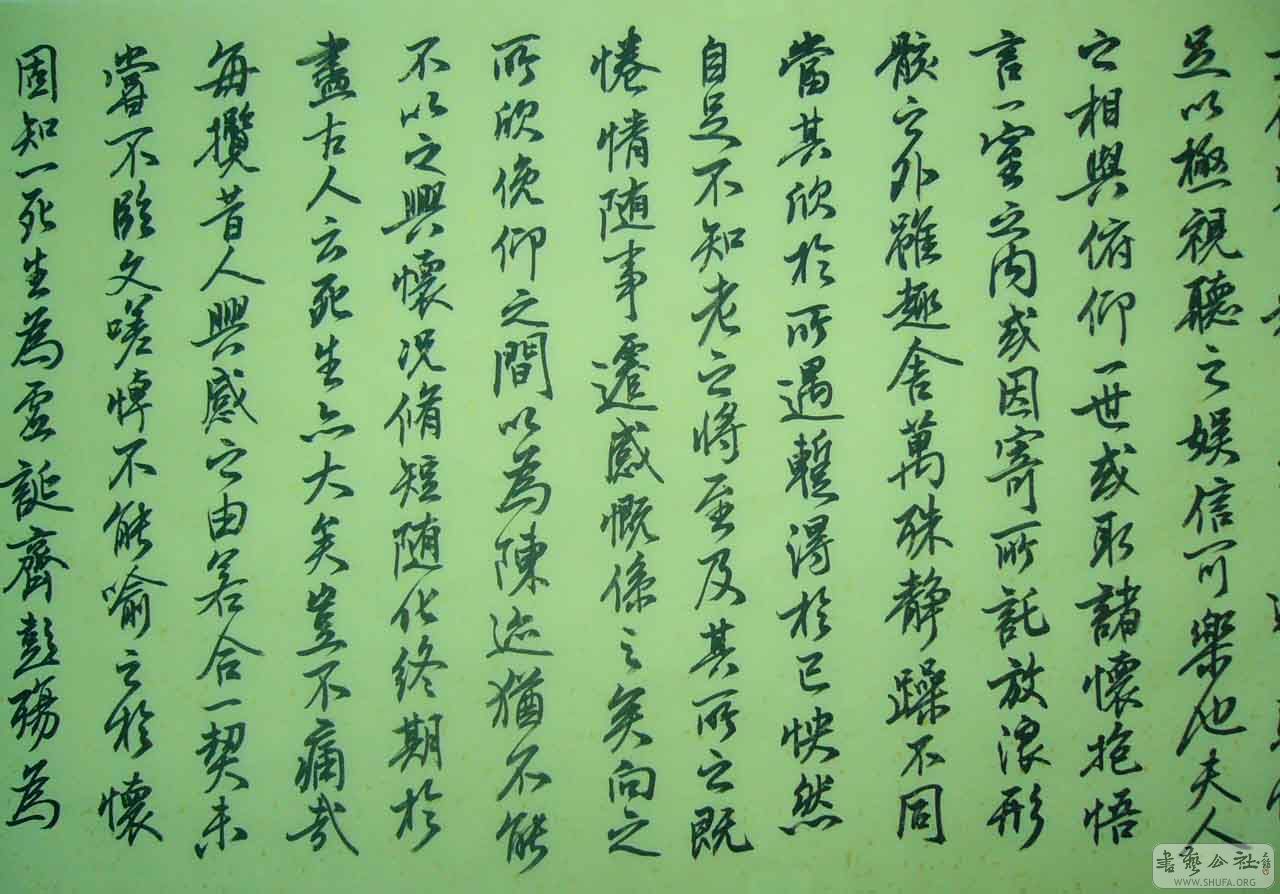 足以極視聽之娛信可樂也夫人
之相與俯仰一世或取諸懷抱悟
言一室之內或因寄所託放浪形
骸之外雖趣舍萬殊靜躁不同
當其欣於所遇暫得於己怏然
自足不知老之將至及其所之既
惓情隨事遷感慨係之矣向之
所欣俛仰之間以為陳迹猶不能
不以之興懷況脩短隨化終期於
盡古人云死生亦大矣豈不痛哉
每攬昔人興感之由若合一契未
嘗不臨文嗟悼不能喻之於懷
固知一死生為虛誕齊彭殤為
書藝公社
WWW.SHUFA.ORG